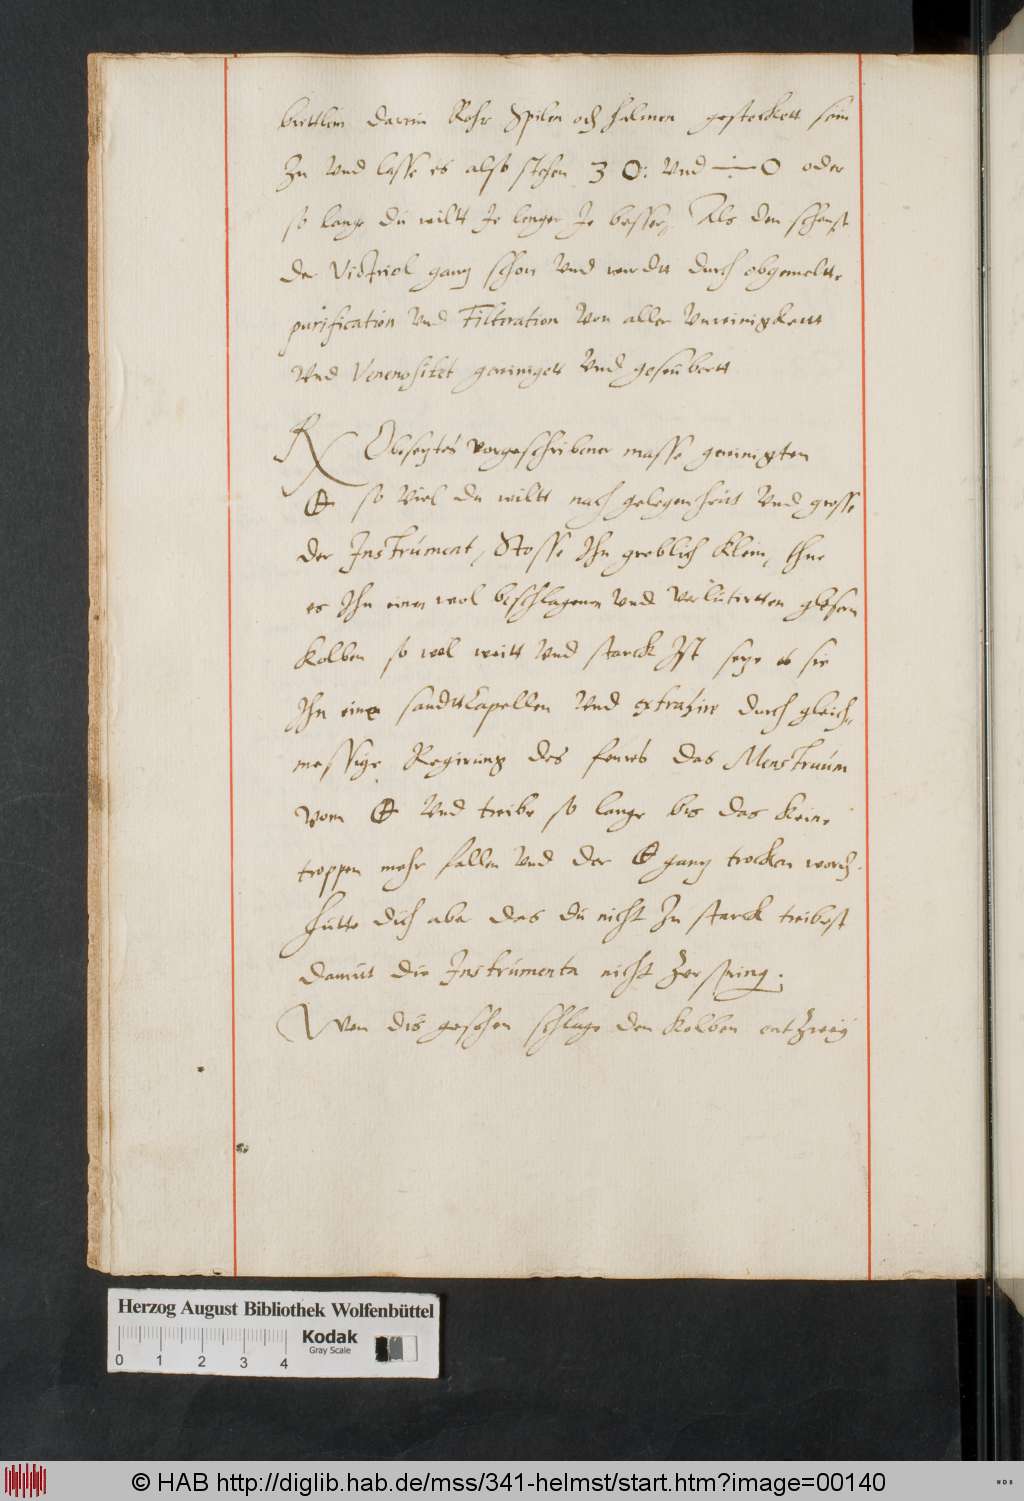 brettlein darein Rohr Spilen oder halmen gesteckett sein
Zu Vnd lasse es also stehen 3 O: Vnd O oder
so lange du wiltt Je lenger Je besser, Als den scheust
der Victriol gantz schon Vnd wurdtt durch obgemeltte
purification Vnd Filtration Von aller Vnreinigkeitt
Vnd Venenositet gereinigett Vnd geseubertt
Obgesetztes vorgeschribener masse gereinigten
so Viel du wiltt nach gelegenheitt Vnd grosse
der Instrument, Stosse Ihn groblich Klein, thue
es Ihn einen wol beschlagenen Vnd Verlutirtten glesern
Kolben so wol weitt Vnd starck Ist setze es sie
Ihn eine sandttCapellen Vnd extrahire durch gleich-
messige Regirung des feures das Menstruum
Vom Vnd treibe so lange bis das Keine
troppen mehr fallen Vnd der gantz trocken word
hutte dich aber das du nicht Zu starck treibest
damitt die Instrumenta nicht Zerspring:
Wen dis geschen schlage den Kolben entzweÿ
Herzog August Bibliothek Wolfenbüttel
Kodak
Gray Scale
0 1 2 3 4
© HAB http://diglib.hab.de/mss/341-helmst/start.htm?image=00140